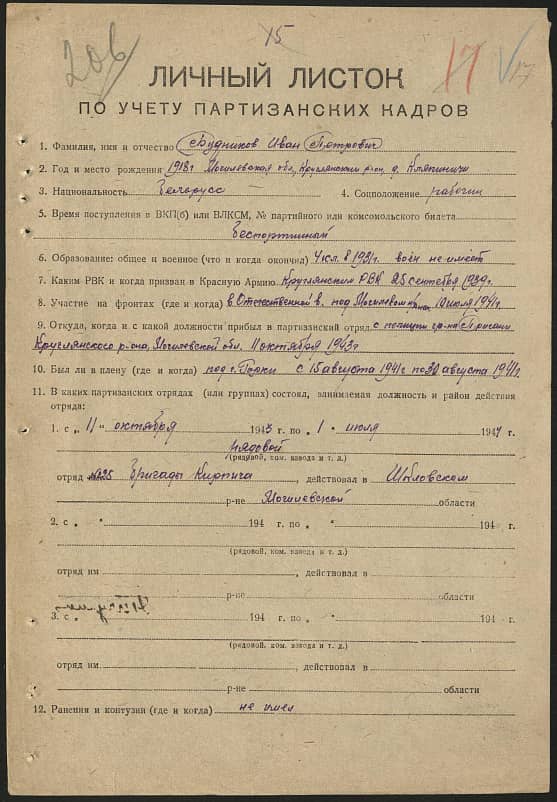 206
15
17
17
ЛИЧНЫЙ ЛИСТОК
ПО УЧЕТУ ПАРТИЗАНСКИХ КАДРОВ
1. Фамилия, имя и отчество Будников Иван Петрович
2. Год и место рождения 1918 г Могилевская обл, Круглянский р-он, д.
3. Национальность Белорусс 4. Соцположение рабочий
5. Время поступления в ВКП(б) или ВЛКСМ, № партийного или комсомольского билета
Беспортийный
6. Образование: общее и военное (что и когда окончил) 4 кл. в 1931г. воен не имеет
7. Каким РВК и когда призван в Красную Армию Круглянским РВК 25 сентября 1939г.
8. Участие на фронтах (где и когда) в Отечественной в. под Могилевом 10 июля 1941г
9. Откуда, когда и с какой должности прибыл в партизанский отряд с
Круглянского р-она, Могилевской обл. 11 октября 1943г
10. Был ли в плену (где и когда) под г. Горки с 15 августа 1941г по 30 августа 1941г.
11. В каких партизанских отрядах (или группах) состоял, занимаемая должность и район действия
отряда:
1. с „11“ октября 1943 г. по „1“ июля 1944 г.
рядовой
(рядовой, ком. взвода и т. д.)
отряд №25 Бригады Кирпича, действовал в Шкловском
р-не Могилевской области
2. с „ “ 194 г. по „ “ 194 г.
(рядовой, ком. взвода и т. д.)
отряд им , действовал в
р-не области
3. с „ “ 194 г. по „ “ 194 г.
(рядовой, ком. взвода и т. д.)
отряд им. , действовал в
р-не области
12. Ранения и контузии (где и когда) не имел